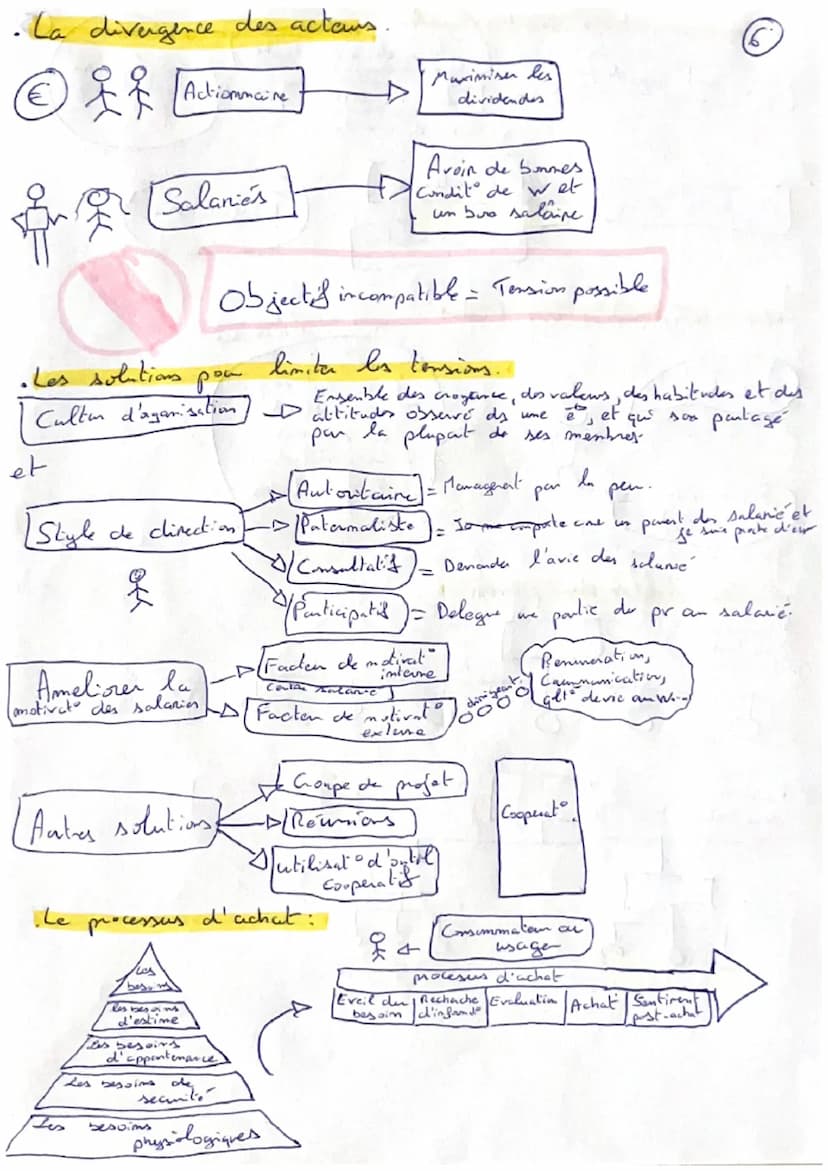 . La divergence des acteurs.
6
€
Actionnaire
Maximiser les
dividendes
Salariés
Avoir de bonnes
conditº de W et
un bon salaire
Objectif incompatible = Tension possible
. Les solutions pour limiter les tensions.
Culture d'organisation
Ensemble des croyance, des valeurs, des habitudes et des
attitudes observé ds une et qui son partagé
par la plupart de ses membres.
et
Style de direction
Autoritaire = Managent par la peur.
Paternaliste = un parent des salarié et
je suis
Consultatif = Demande l'avie des salarié
Participatif = Delegue une partie du pv au salarié.
Ameliorer la
motivatº des salariés
Facteur de motivatº
interne
salarié
Facteur de motivatº
externe
dirigeant.
Remuneration,
Communication,
qltº de vie au W
Autres solutions
Groupe de projet
Réunions
utilisatº d'outil
cooperatif
Cooperatº.
. Le processus d'achat :
Consommateur ou
usager
processus d'achat
Eveil du
besoin
Recherche
d'infomatº
Evaluation
Achat
Sentiment
post-achat
Les
besoins
les besoins
d'estime
Les besoins
d'appartenance
Les besoins de
securité
Les besoins
physiologiques